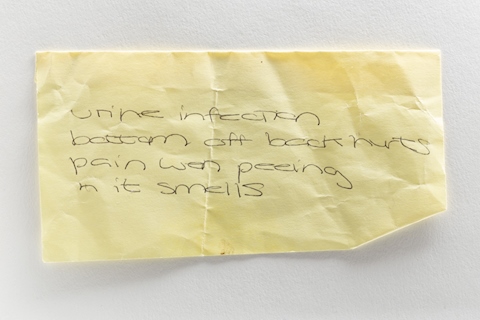 urine infection
bottom off back hurts
pain wen peeing
n it smells